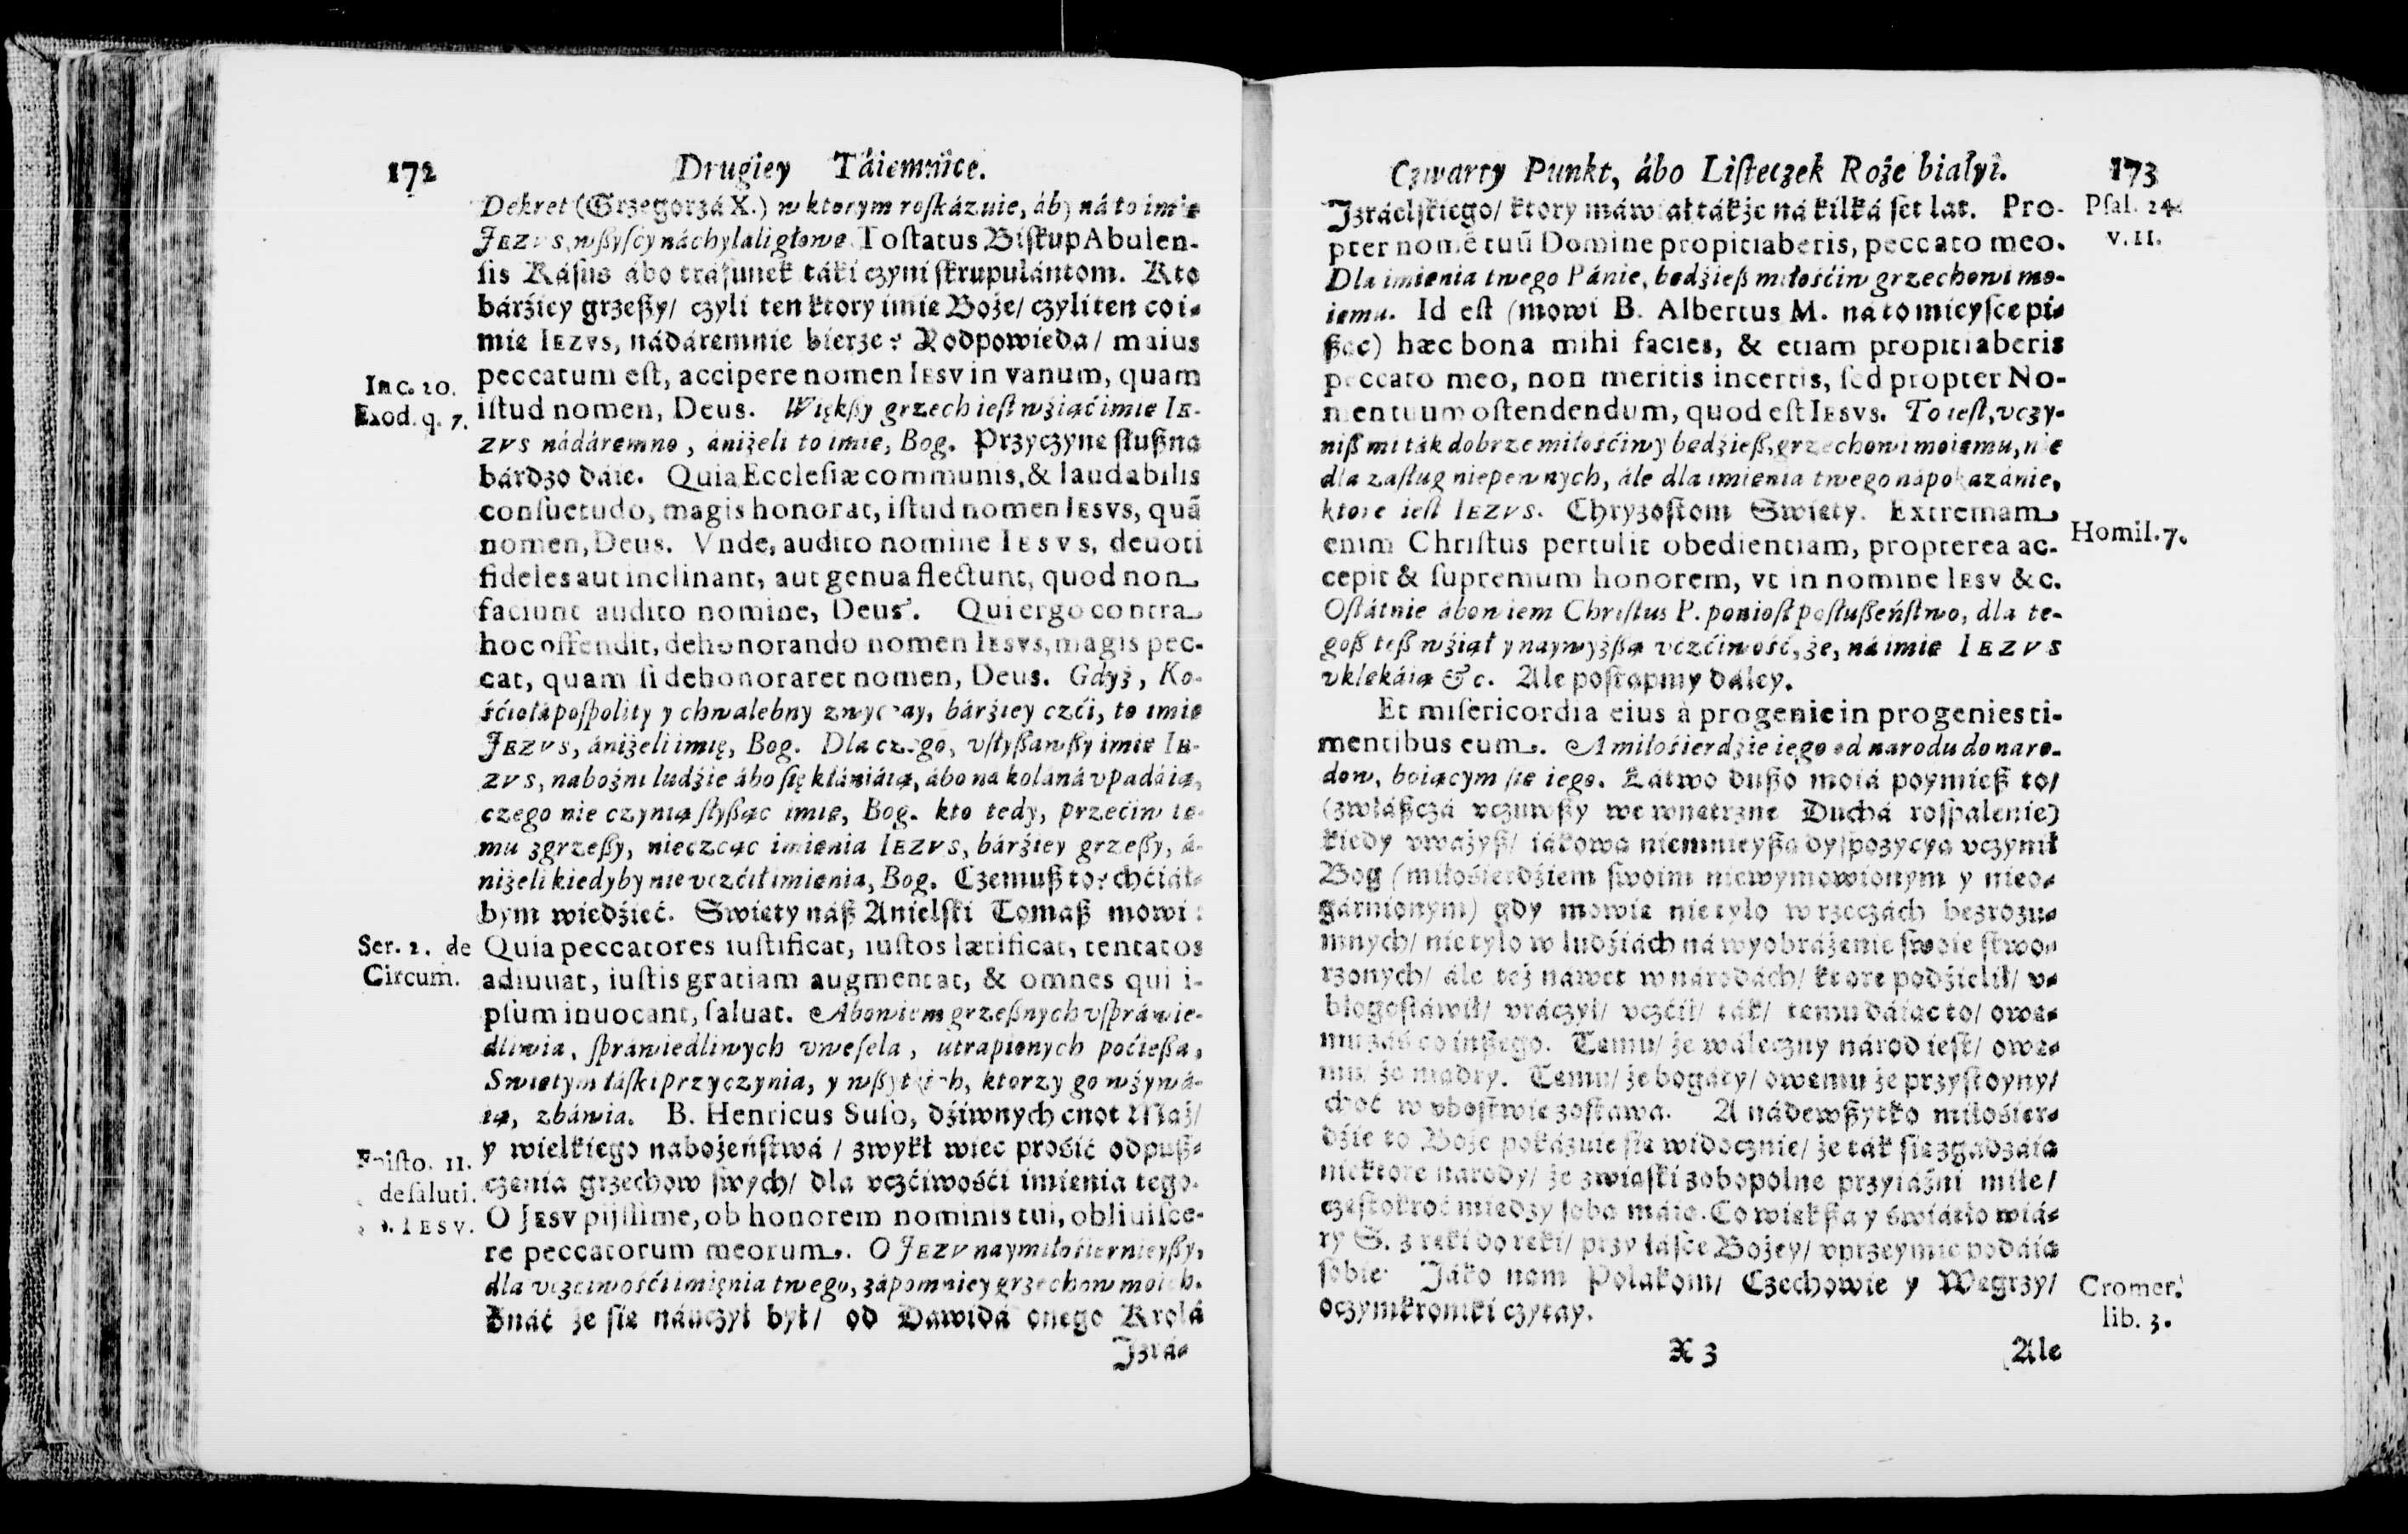 172 Drugiey Táiemnice.
Dekret (Grzegorzá X.) w ktorym roſkázuie, áby ná to imię
JEZVS, wßyſcy náchylali głowę. Toſtatus Biſkup Abulen-
ſis Káſus ábo tráfunek táki czyni ſkrupulántom. Kto
bárźiey grzeßy/ czyli ten ktory imię Boże/ czyli ten co i-
mię IEZVS, nádáremnie bierze? Y odpowieda/ maius
In c. 20. peccatum eſt, accipere nomen IESV in vanum, quam
Exod. q. 7. iſtud nomen, Deus. Większy grzech ieſt wźiąć imię IE-
ZVS nádáremno, ániżeli to imię, Bog. Przyczynę ſłußną
bárdzo dáie. Quia Eccleſiæ communis, & laudabilis
conſuetudo, magis honorat, iſtud nomen IESVS, quã
nomen, Deus. Vnde, audito nomine IESVS, deuoti
fideles aut inclinant, aut genua flectunt, quod non
faciunt audito nomine, Deus. Qui ergo contra
hoc offendit, dehonorando nomen IESVS, magis pec-
cat, quam ſi dehonoraret nomen, Deus. Gdyż, Ko-
śćiołá poſpolity y chwalebny zwyczay, bárźiey czći, to imię
JEZVS, ániżeli imię, Bog. Dla czego, vſłyßawßy imię IE-
ZVS, nabożni ludźie ábo ſię kłániáią, ábo ná koláná vpadáią,
czego nie czynią ſłyßąc imię, Bog. kto tedy, przećiw te-
mu zgrzeßy, nieczcąc imienia IEZVS, bárźiey grzeßy, á-
niżeli kiedyby nie vczćił imienia, Bog. Czemuß to? chćiał-
bym wiedźieć. Swięty náß Anielſki Tomaß mowi:
Ser. 2. de Quia peccatores iuſtificat, iuſtos lætificat, tentatos
Circum. adiuuat, iuſtis gratiam augmentat, & omnes qui i-
pſum inuocant, ſaluat. Abowiem grzeßnych vſpráwie-
dliwia, ſpráwiedliwych vweſela, utrapionych poćießa,
Swiętym łáſki przyczynia, y wßytkich, ktorzy go wżywá-
ią, zbáwia. B. Henricus Suſo, dźiwnych cnot Mąż/
Epiſto. 11. y wielkiego nabożeńſtwá / zwykł więc prośić odpuß-
de ſaluti. czenia grzechow ſwych/ dla vczćiwośći imienia tego.
IESV. O JESV pijſſime, ob honorem nominis tui, obliuiſce-
re peccatorum meorum. O JEZV naymiłośiernieyßy,
dla vczciwośći imięnia twego, zápomniey grzechow moich.
Znáć że ſię náuczył był/ od Dawidá onego Krolá
Jzrá-
Czwarty Punkt, ábo Liſteczek Roże białyi. 173
Jzráelſkiego/ ktory máwiał tákże ná kilká ſet lat. Pro- Pſal. 24.
pter nomẽ tuũ Domine propitiaberis, peccato meo. v. 11.
Dla imienia twego Pánie, będźieß miłośćiw grzechowi mo-
iemu. Id eſt (mowi B. Albertus M. ná to mieyſce pi-
ßąc) hæc bona mihi facies, & etiam propitiaberis
peccato meo, non meritis incertis, ſed propter No-
men tuum oſtendendum, quod eſt IESVS. To ieſt, vczy-
niß mi ták dobrze miłośćiwy będźieß, grzechowi moiemu, nie
dla zaſług niepewnych, ále dla imienia twego ná pokazánie,
ktore ieſt IEZVS. Chryzoſtom Swięty. Extremam
enim Chriſtus pertulit obedientiam, propterea ac- Homil. 7.
cepit & ſupremum honorem, vt in nomine IESV &c.
Oſtátnie ábowiem Chriſtus P. ponioſł poſłußeńſtwo, dla te-
goß teß wźiął y naywyżßą vczćiwość, że, ná imię IEZVS
vklękáią &c. Ale poſtąpmy daley.
Et miſericordia eius à progenie in progenies ti-
mentibus eum. A miłośierdźie iego od narodu do naro-
dow, boiącym ſię iego. Łátwo dußo moiá poymieß to/
(zwłáßczá vczuwßy wewnętrzne Duchá roſpalenie)
kiedy vważyß/ iákową niemnieyßą dyſpozycyą vczynił
Bog (miłośierdźiem ſwoim niewymowionym y nieo-
gárnionym) gdy mowię nie tylo w rzeczách bezrozu-
mnych/ nie tylo w ludźiách ná wyobrażenie ſwoie ſtwo-
rzonych/ ále też náwet w národách/ ktore podźielił/ v-
błogoſłáwił/ vráczył/ vczćił/ ták/ temu dáiąc to/ owe-
mu záś co inßego. Temu/ że wáleczny národ ieſt/ owe-
mu że mądry. Temu/ że bogáty/ owemu że przyſtoyny/
choć w vboſtwie zoſtawa. A nádewßytko miłośier-
dźie to Boże pokázuie ſię widocznie/ że ták ſię zgadzáią
niektore narody/ że związki zobopolne przyiáźni miłe/
częſtokroć między ſobą máią. Co więkßa y świátło wiá-
ry S. z ręki do ręki/ przy łáſce Bożey/ vprzeymie podáią
ſobie. Jáko nam Polakom/ Czechowie y Węgrzy/ Cromer.
o czym kroniki czytay. lib. 3.
X 3 Ale